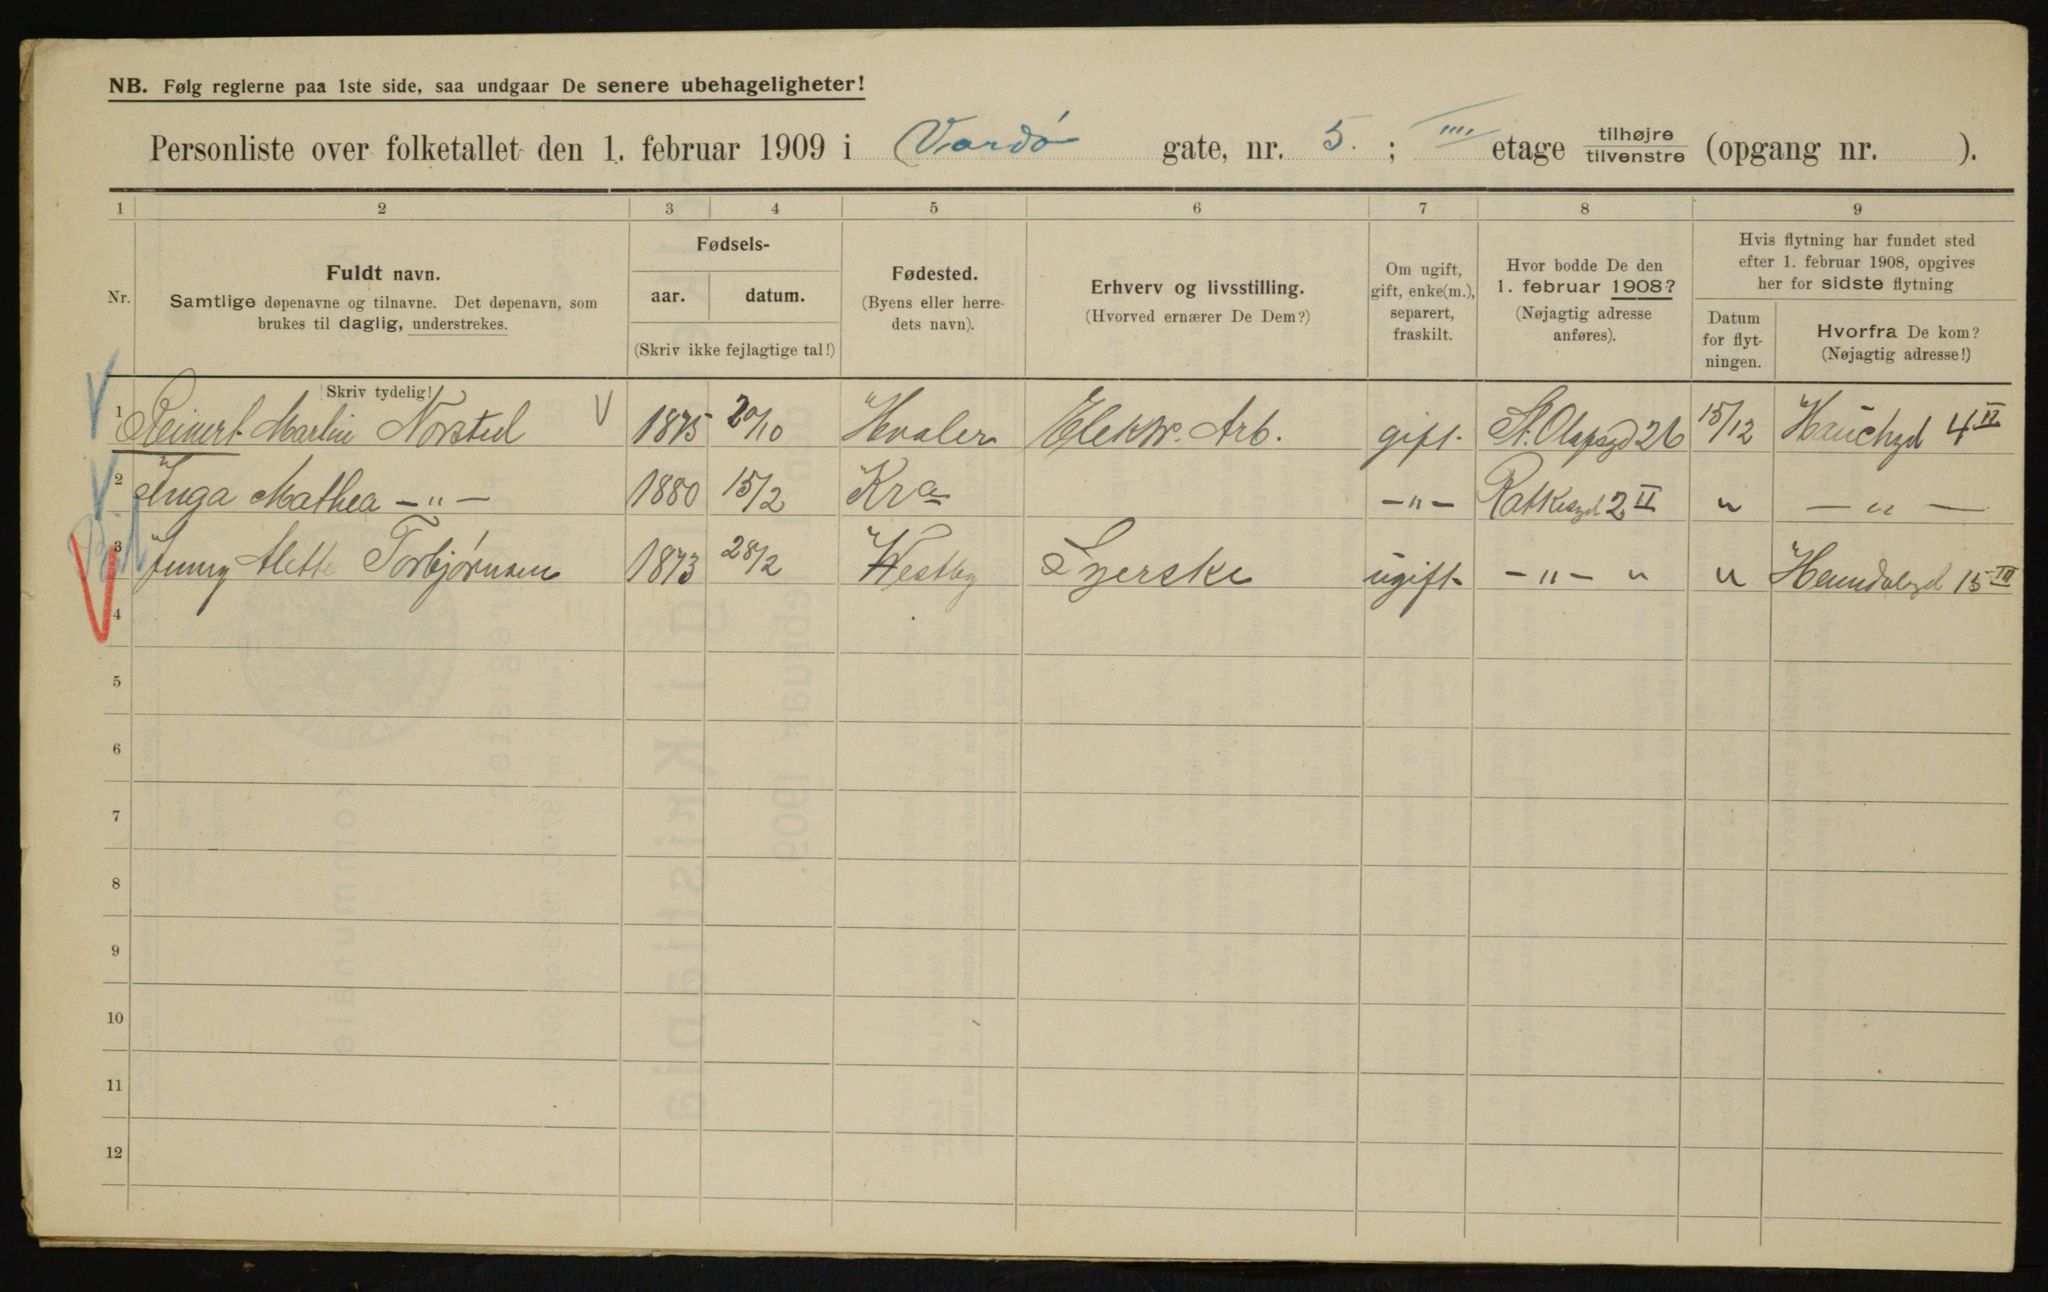 NB. Følg reglerne paa 1ste side, saa undgaar De senere ubehageligheter!
Personliste over folketallet den 1. februar 1909 i Vardø gate, nr. 5. ; IIII etage tilhøjre tilvenstre (opgang nr. ).
1 2 3 4 5 6 7 8 9
Nr.
Fuldt navn.
Samtlige døpenavne og tilnavne. Det døpenavn, som
brukes til daglig, understrekes.
Skriv tydelig!
Fødsels-
aar. datum.
(Skriv ikke fejlagtige tal!)
Fødested.
(Byens eller herre-
dets navn).
Erhverv og livsstilling.
(Hvorved ernærer De Dem?)
Om ugift,
gift, enke(m.),
separert,
fraskilt.
Hvor bodde De den
1. februar 1908?
(Nøjagtig adresse
anføres).
Hvis flytning har fundet sted
efter 1. februar 1908, opgives
her for sidste flytning
Datum
for flyt-
ningen.
Hvorfra De kom?
(Nøjagtig adresse!)
1 Reinert Martin Norstul 1875 20/10 Hvaler Elektr. Arb. gift. St. Olafsgd 26 15/12 Hauchgd 4 II
2 Inga Mathea —"— 1880 15/2 Kra —"— Ratkesgd 2 II " —"—
3 Jenny Alette Torbjørnsen 1873 28/2 Westby Syerske ugift. —"— " " 15 III
4
5
6
7
8
9
10
11
12